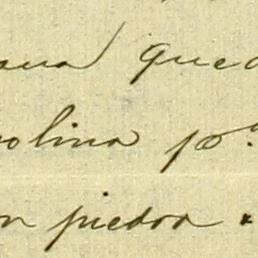 ana que
olina pª
n piedra .